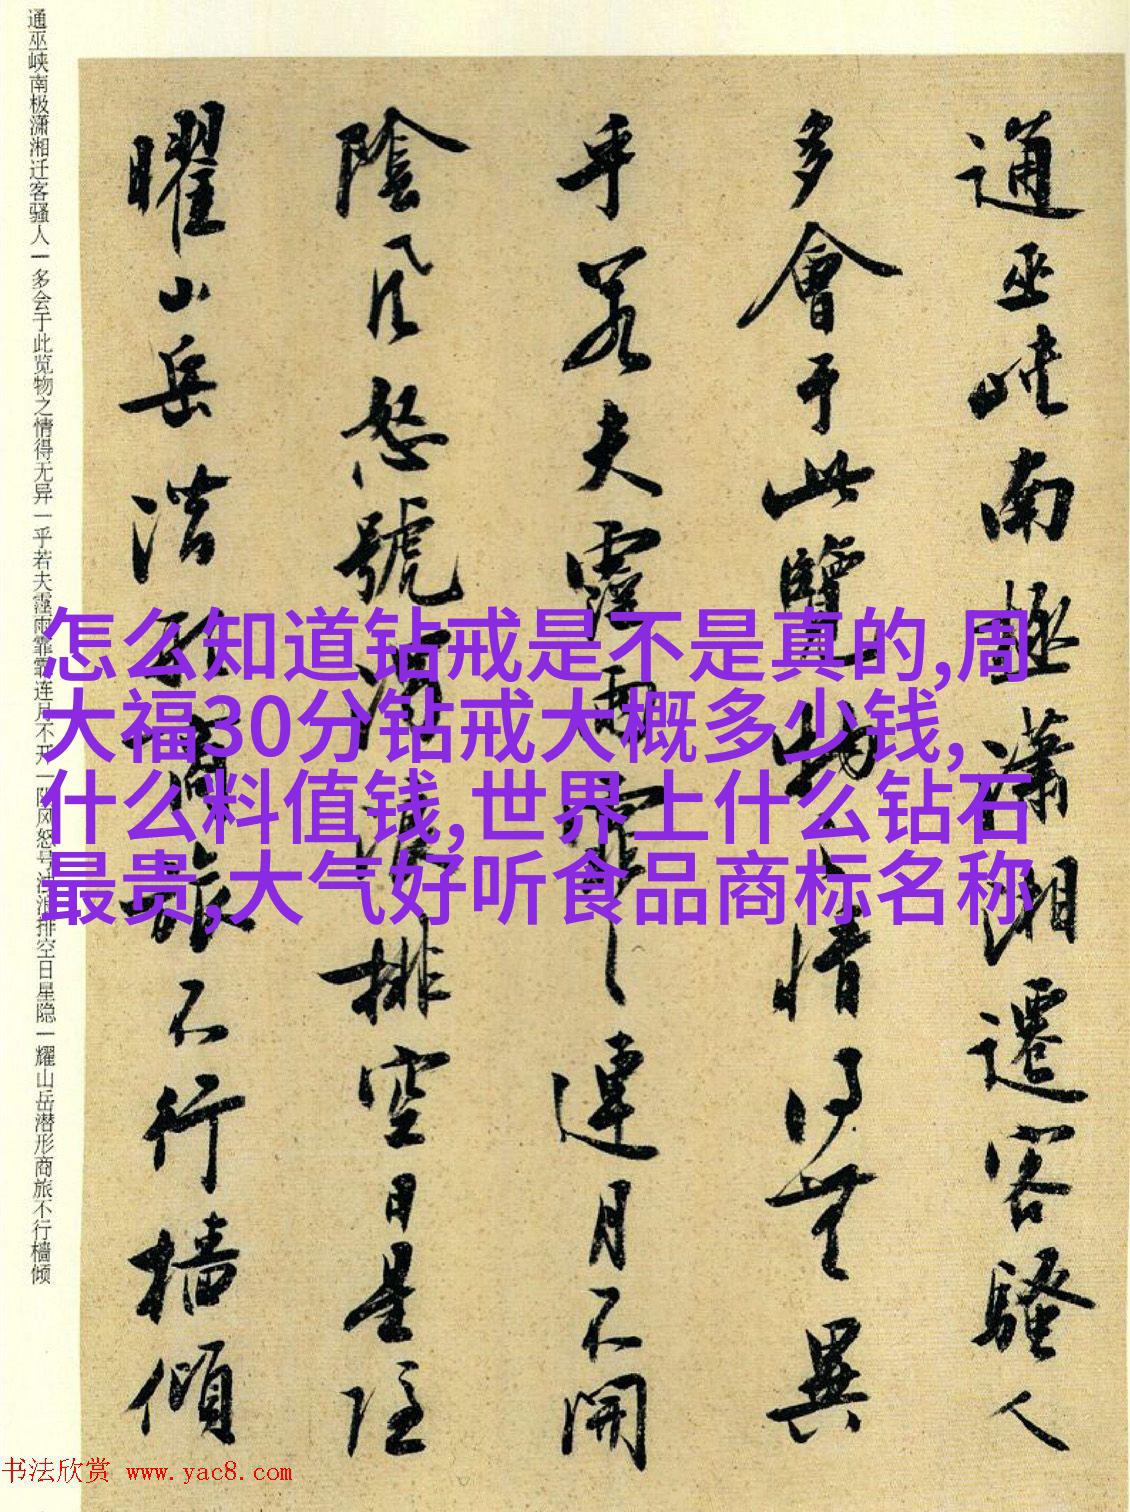 通巫峽南極瀟湘遷客騷人
多會于此覽物之情得無異
乎若夫霪雨霏霏連月不開
陰風怒號濁浪排空日星隱
曜山岳潛形商旅不行檣傾
通巫峡南极潇湘迁客骚人一多会于此览物之情得无异一乎若夫霪雨霏霏连月不开一阴风怒号浊浪排空日星隐一耀山岳潜形商旅不行檣倾
怎么知道钻戒是不是真的,周
大福30分钻戒大概多少钱,
什么料值钱,世界上什么钻石
最贵,大气好听食品商标名称
书法欣赏 www.yac8.com